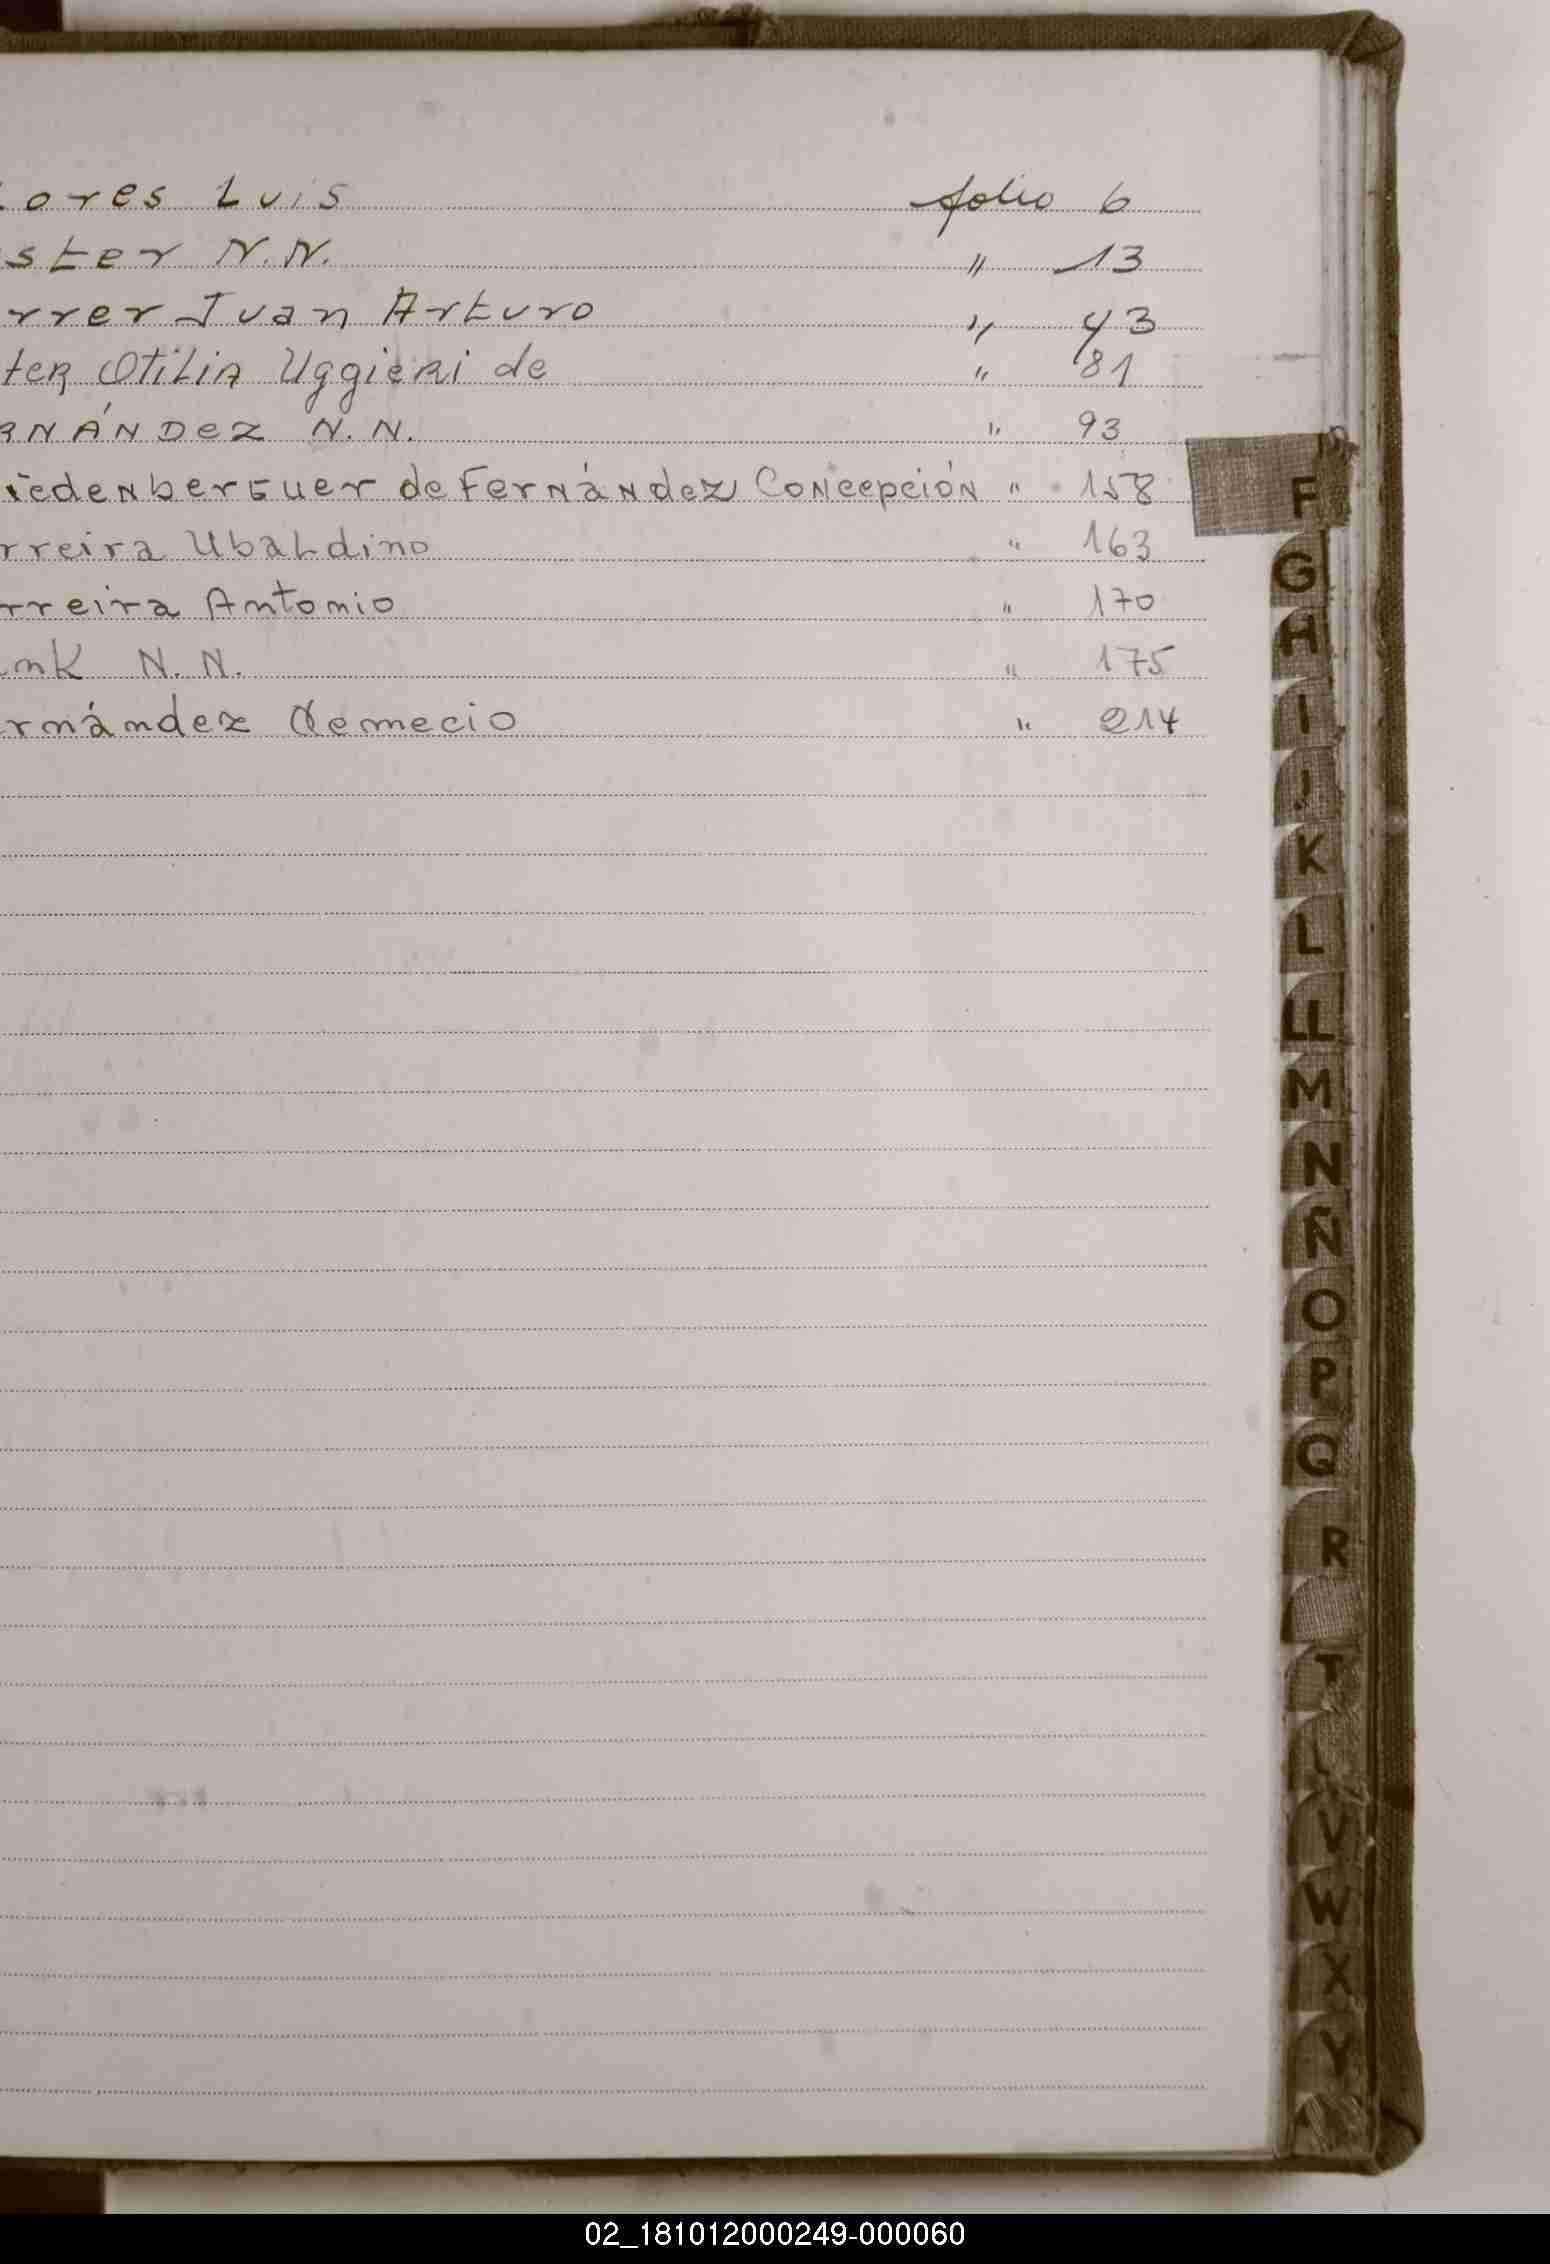 lores Luis folio 6
ster N.N. " 13
rrer Juan Arturo " 43
ter Otilia Uggieri de " 81
RNÁNDEZ N.N. " 93
iedenberguer de Fernández Concepción " 158
rreira Ubaldino " 163
rreira Antonio " 170
nk N.N. " 175
rnández Nemecio " 214
F
G
H
I
J
K
L
LL
M
N
Ñ
O
P
Q
R
T
V
W
X
Y
02_181012000249-000060